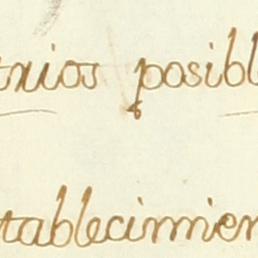 trios posibl
tablecimien